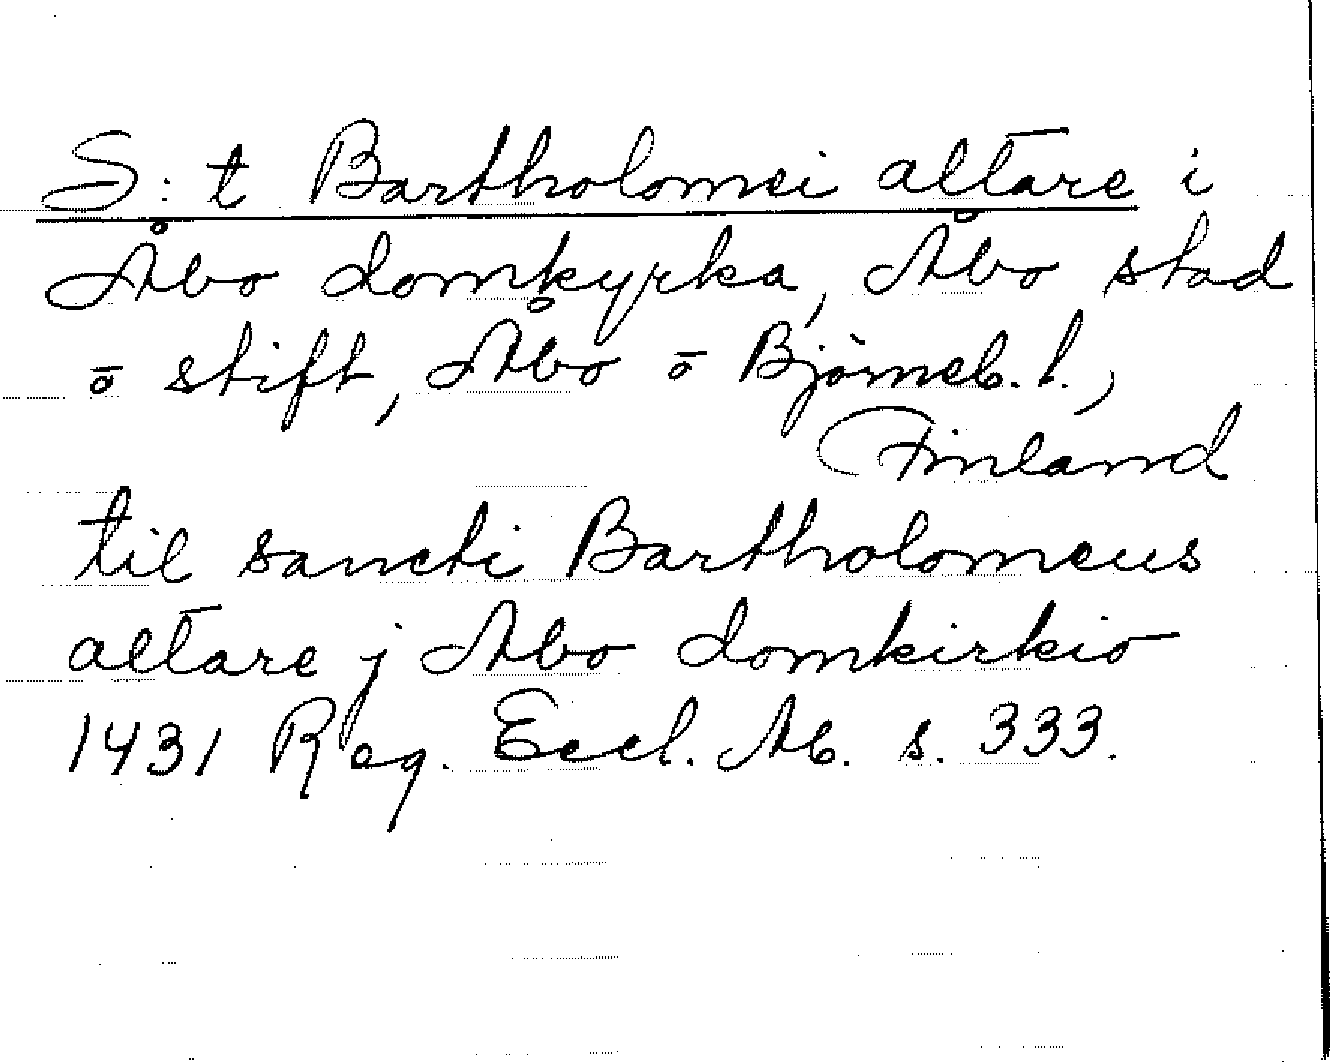 S:t Bartholomei altare i
Åbo domkyrka, Åbo stad
ō stift, Åbo ō Björneb. l.,
Finland
til sancti Bartholomeus
altare j Abo domkirkio
1431 Reg. Eccl. Ab. s. 333.